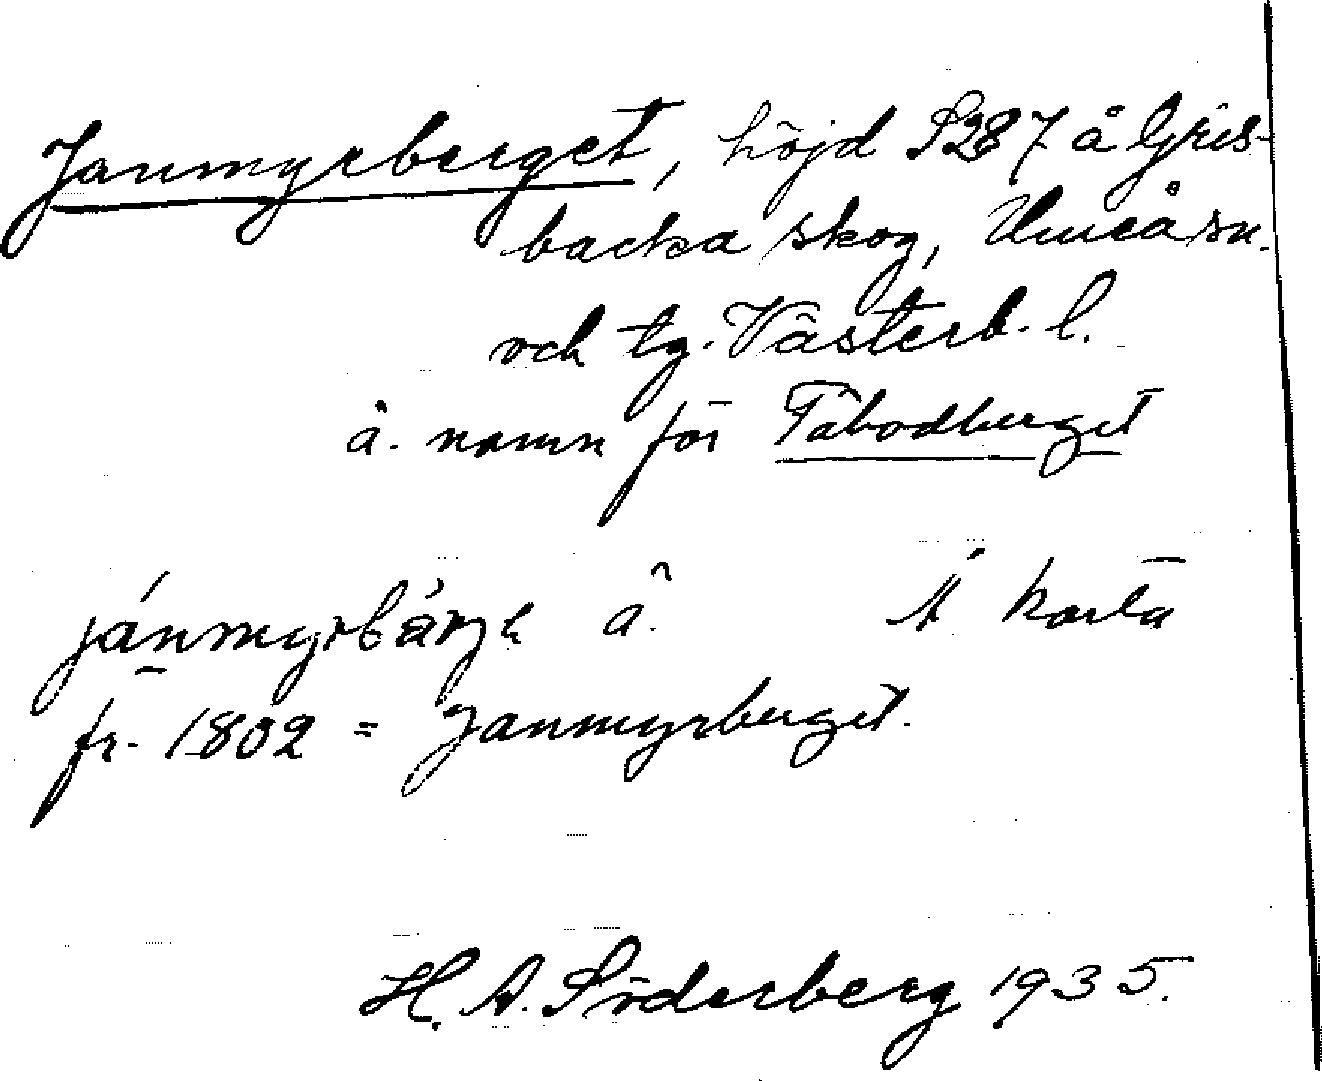 Janmyrberget, höjd S287 å Gris-
backa skog, Umeå sn.
och tg. Västerb. l.
ä. namn för Täbodberget
jánmyrbárje ä. Å karta
fr. 1802 = Janmyrberget.
H. A. Söderberg 1935.